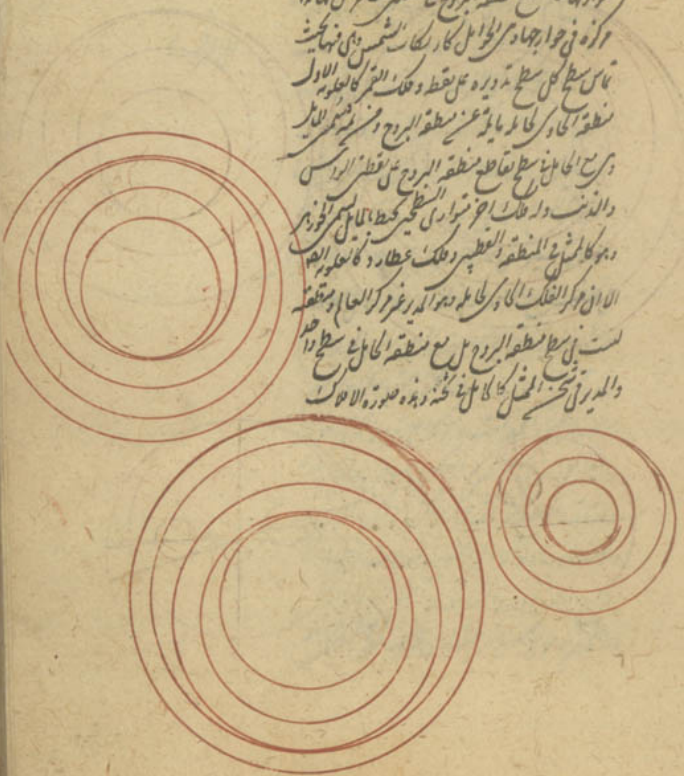 مركزة في حوامل كارتكاز الشمس وهي فيها بحيث
تماس سطح كل سطح تدويره على نقطة وفلك القمر كالعلوية الا ان
منطقة الحاوي لحامله مايلة عن منطقة البروج ومن ثمة يسمى المايل
وهي مع الحامل في سطح تقاطع منطقة البروج على نقطتي الراس
والذنب وله فلك اخر متوازي السطحين محيط بالمايل يسمى الجوزهر
وهو كالممثل في المنطقة والقطبين وفلك عطارد كالعلوية ايضا
الا ان مركز الفلك الحاوي لحامله وهو المدير غير مركز العالم ومنطقته
ليست في سطح منطقة البروج بل مع منطقة الحامل في سطح واحد
والمدير في ثخن الممثل كالحامل في ثخنه وهذه صورة الافلاك